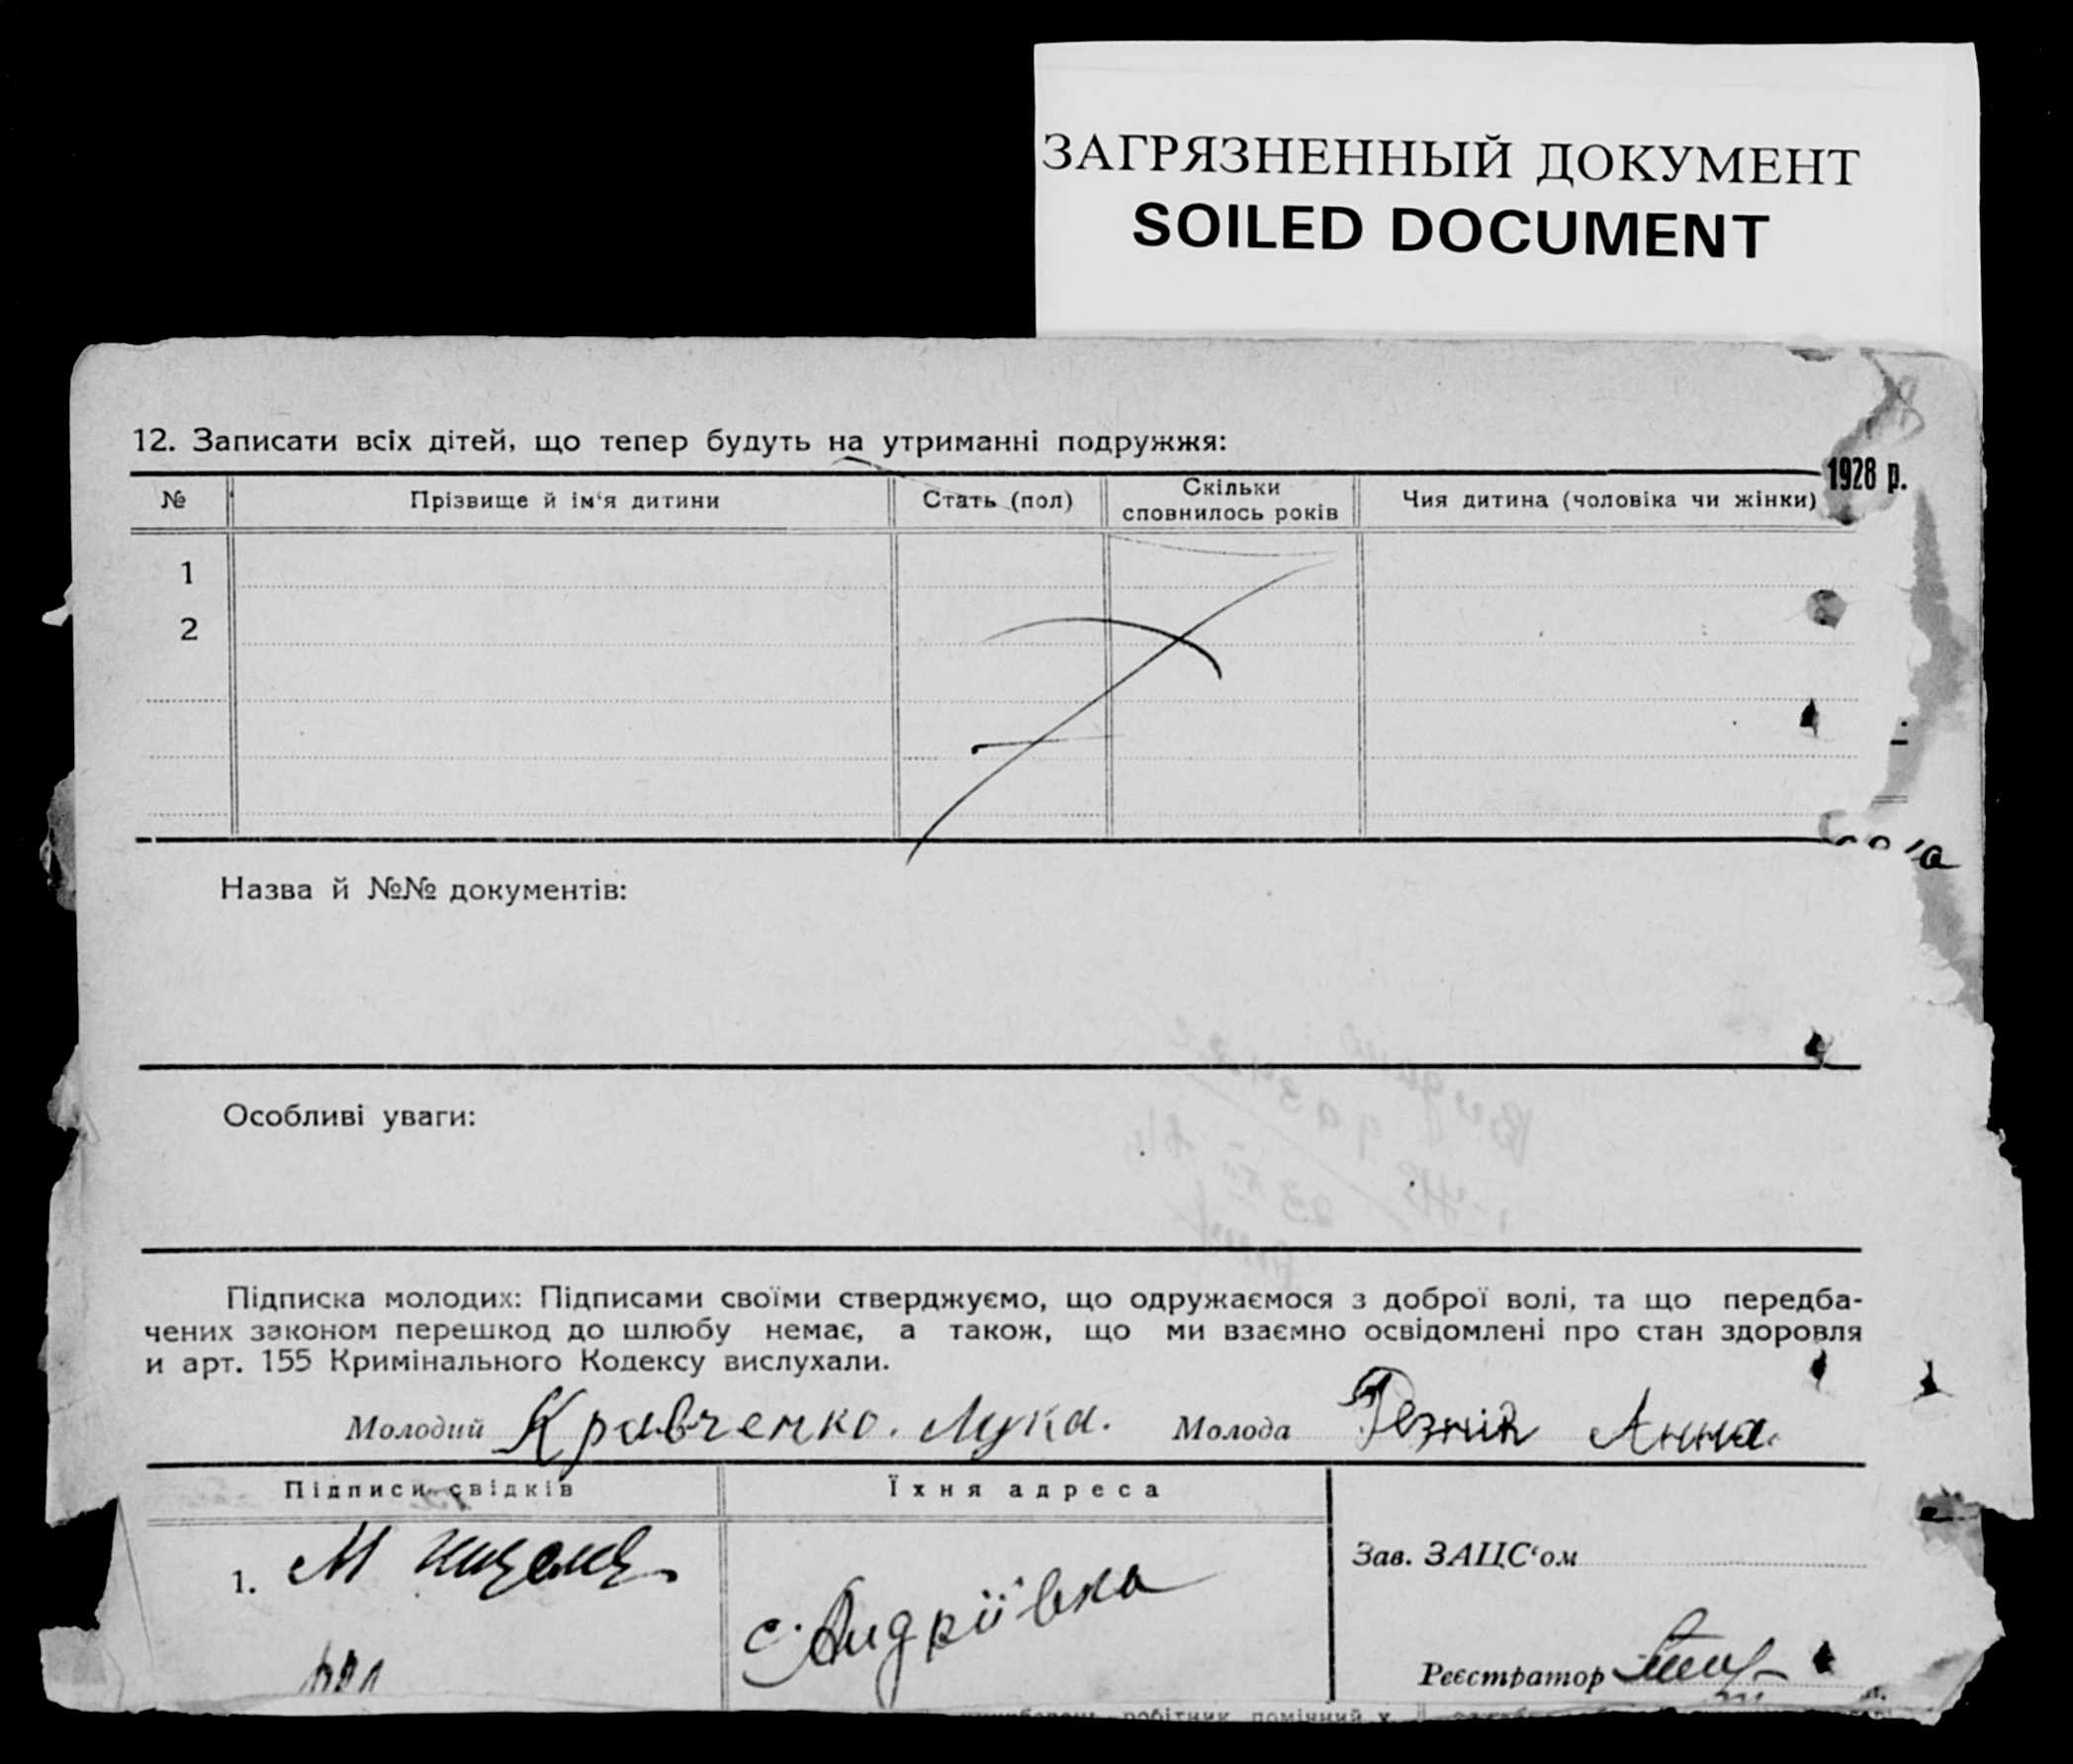 ЗАГРЯЗНЕННЫЙ ДОКУМЕНТ
SOILED DOCUMENT
12. Записати всіх дітей, що тепер будуть на утриманні подружжя:
1928 р.
№ Прізвище й ім'я дитини Стать (пол) Скільки сповнилось років Чия дитина (чоловіка чи жінки)
1
2
Назва й №№ документів:
Особливі уваги:
Підписка молодих: Підписами своїми стверджуємо, що одружаємося з доброї волі, та що передба-
чених законом перешкод до шлюбу немає, а також, що ми взаємно освідомлені про стан здоровля
и арт. 155 Кримінального Кодексу вислухали.
Молодий Кравченко. Лука. Молода Резнік Анна.
Підписи свідків Їхня адреса
1. М
с. Андріївка
Зав. ЗАЦС'ом
Реєстратор
робітник помічний